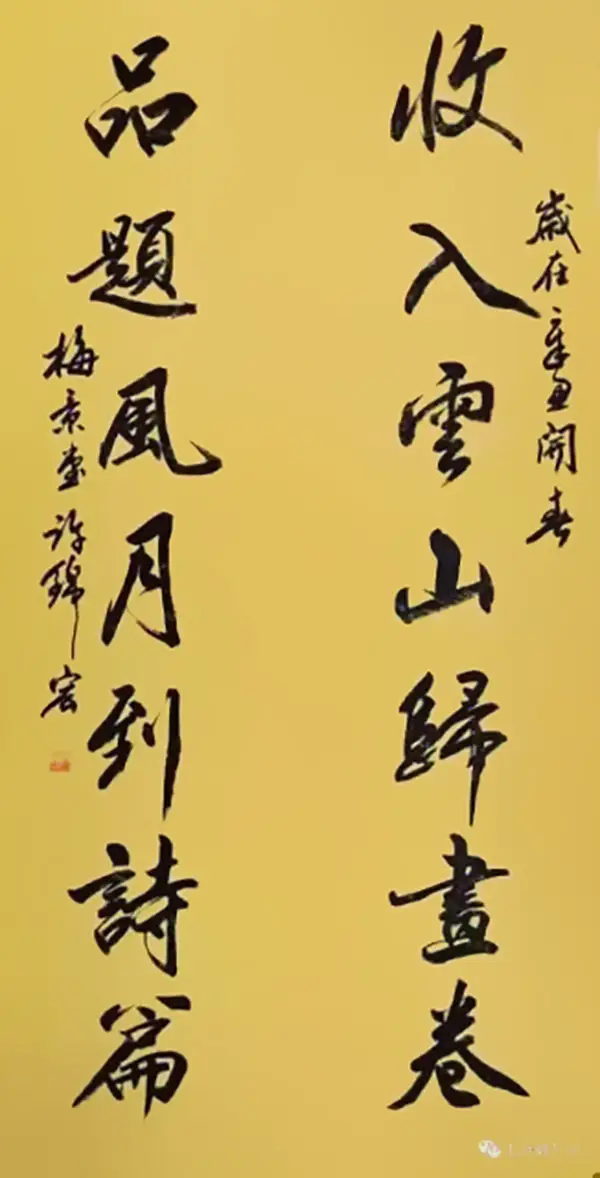 歲在辛丑開春
收入雲山歸畫卷
品題風月到詩篇
梅景堂許錦宏